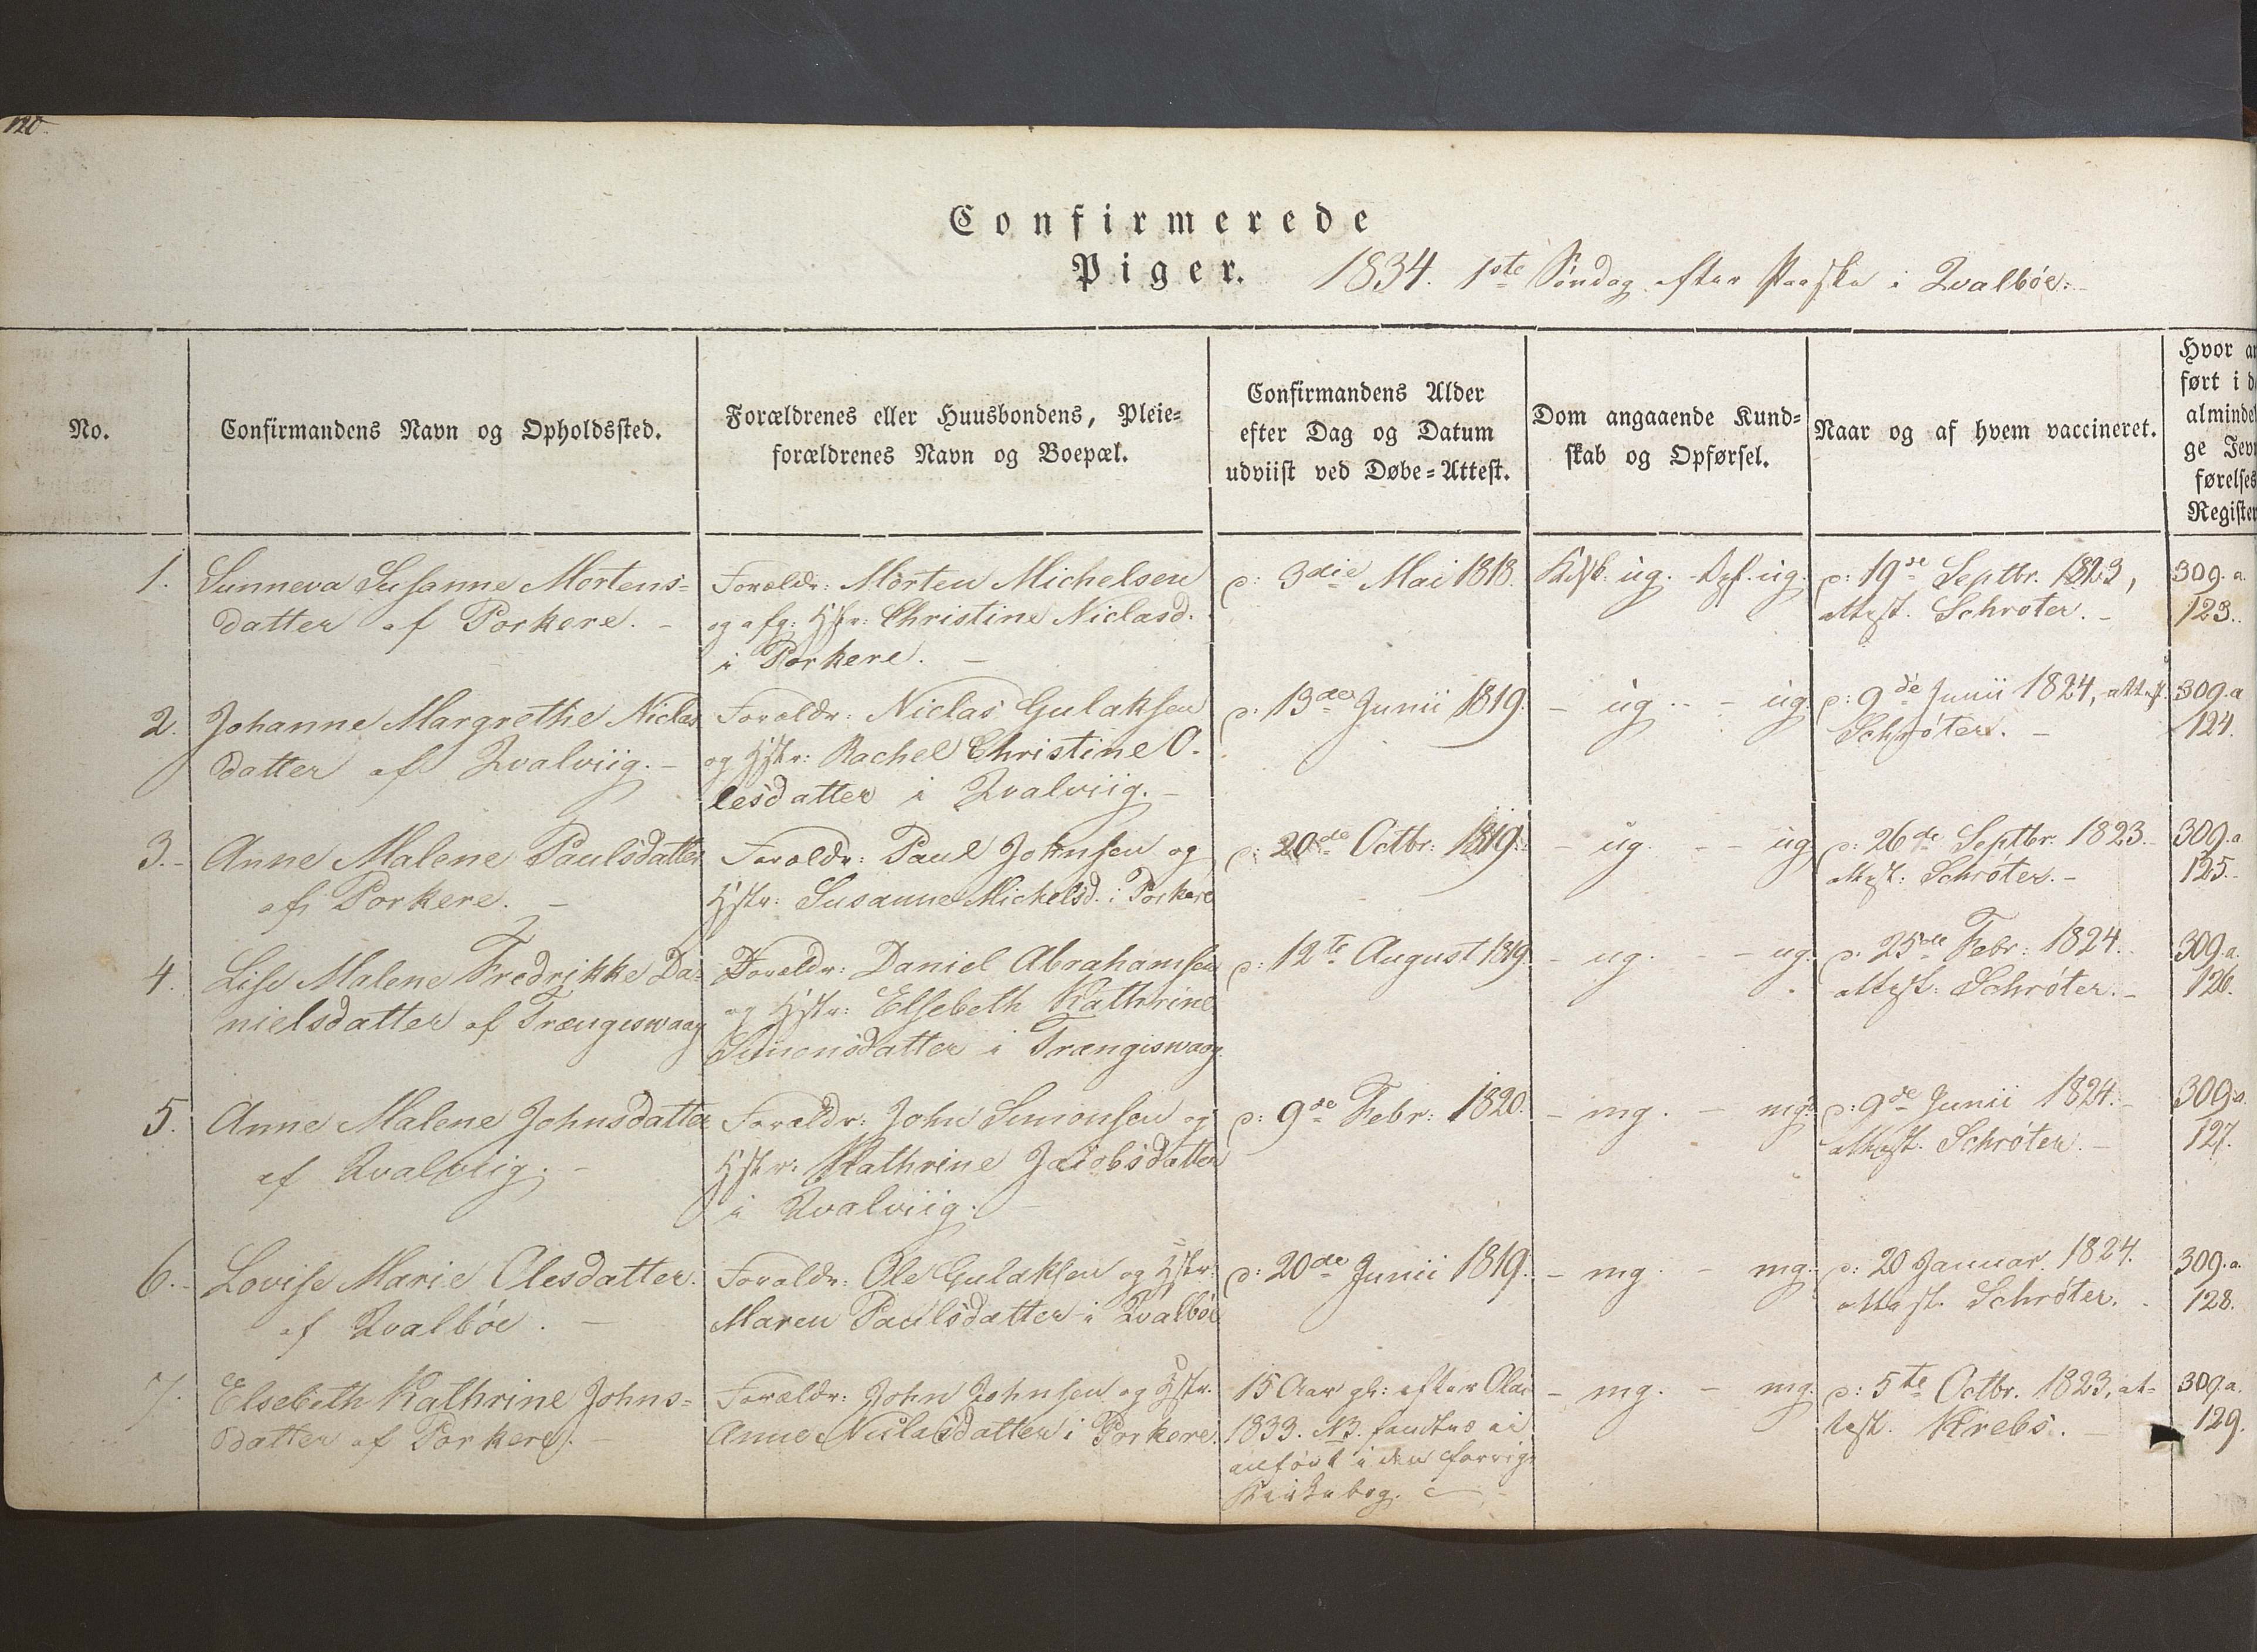 120.
Confirmerede
Piger. 1834. 1ste Søndag efter Paaske i Qvalbøe.
No.
Confirmandens Navn og Opholdssted.
Forældrenes eller Huusbondens, Pleie=
forældrenes Navn og Boepæl.
Confirmandens Alder
efter Dag og Datum
udviist ved Døbe=Attest.
Dom angaaende Kund=
skab og Opførsel.
Naar og af hvem vaccineret.
Hvor an
ført i de
almindel
ge Jevn
førelses
Register
1.
Sunneva Susanne Mortens=
datter af Porkere. –
Forældr: Morten Michelsen
og afg: Hstr: Christine Niclasd.
i Porkere. –
d: 3die Mai 1818.
Kdsk: ug. - Opf. ug.
d: 19de Septbr. 1823,
attest. Schrøter. –
309. a.
123.
2.
Johanne Margrethe Niclas
datter af Qvalviig. –
Forældr: Niclas Gulaksen
og Hstr: Rachel Christine O-
lesdatter i Qvalviig. –
d: 13de Junii 1819.
– ug. – – ug.
d: 9de Junii 1824, attest.
Schrøter. –
309. a
124.
3. –
Anne Malene Paulsdatter
af Porkere. –
Forældr: Paul Johnsen og
Hstr: Susanne Michelsd. i Porkere
d: 20de Octbr: 1819.
– ug. – – ug.
d: 26de Septbr. 1823. –
attest: Schrøter. –
309. a
125. –
4.
Lise Malene Fredrikke Da=
nielsdatter af Trængiswaag
Forældr: Daniel Abrahamsen
og Hstr: Elsebeth Kathrine
Simonsdatter i Trængiswaag.
d: 12te August 1819.
– ug. – – ug.
d. 25de Febr: 1824.
attest: Schrøter. –
309. a.
126.
5.
Anne Malene Johnsdatter
af Qvalviig. –
Forældr: John Simonsen og
Hstr: Kathrine Jacobsdatter
i Qvalviig. –
d: 9de Febr: 1820.
– mg. – mg.
d: 9de Junii 1824. –
attest. Schrøter. –
309. a.
127.
6. –
Lovise Marie Olesdatter.
af Qvalbøe. –
Forældr: Ole Gulaksen og Hstr:
Maren Paulsdatter i Qvalbøe
d: 20de Junii 1819.
– mg. – mg.
d: 20 Januar. 1824.
attest. Schrøter.
309. a.
128.
7.
Elsebeth Kathrine Johns=
datter af Porkere. –
Forældr: John Johnsen og Hstr.
Anne Niclasdatter i Porkere.
15 Aar gl: efter Olai
1833. NB. fandtes ei
anført i den forrige
Kirkebog.
– mg. – mg.
d: 5te Octbr. 1823, at=
test. Krebs. –
309. a.
129.